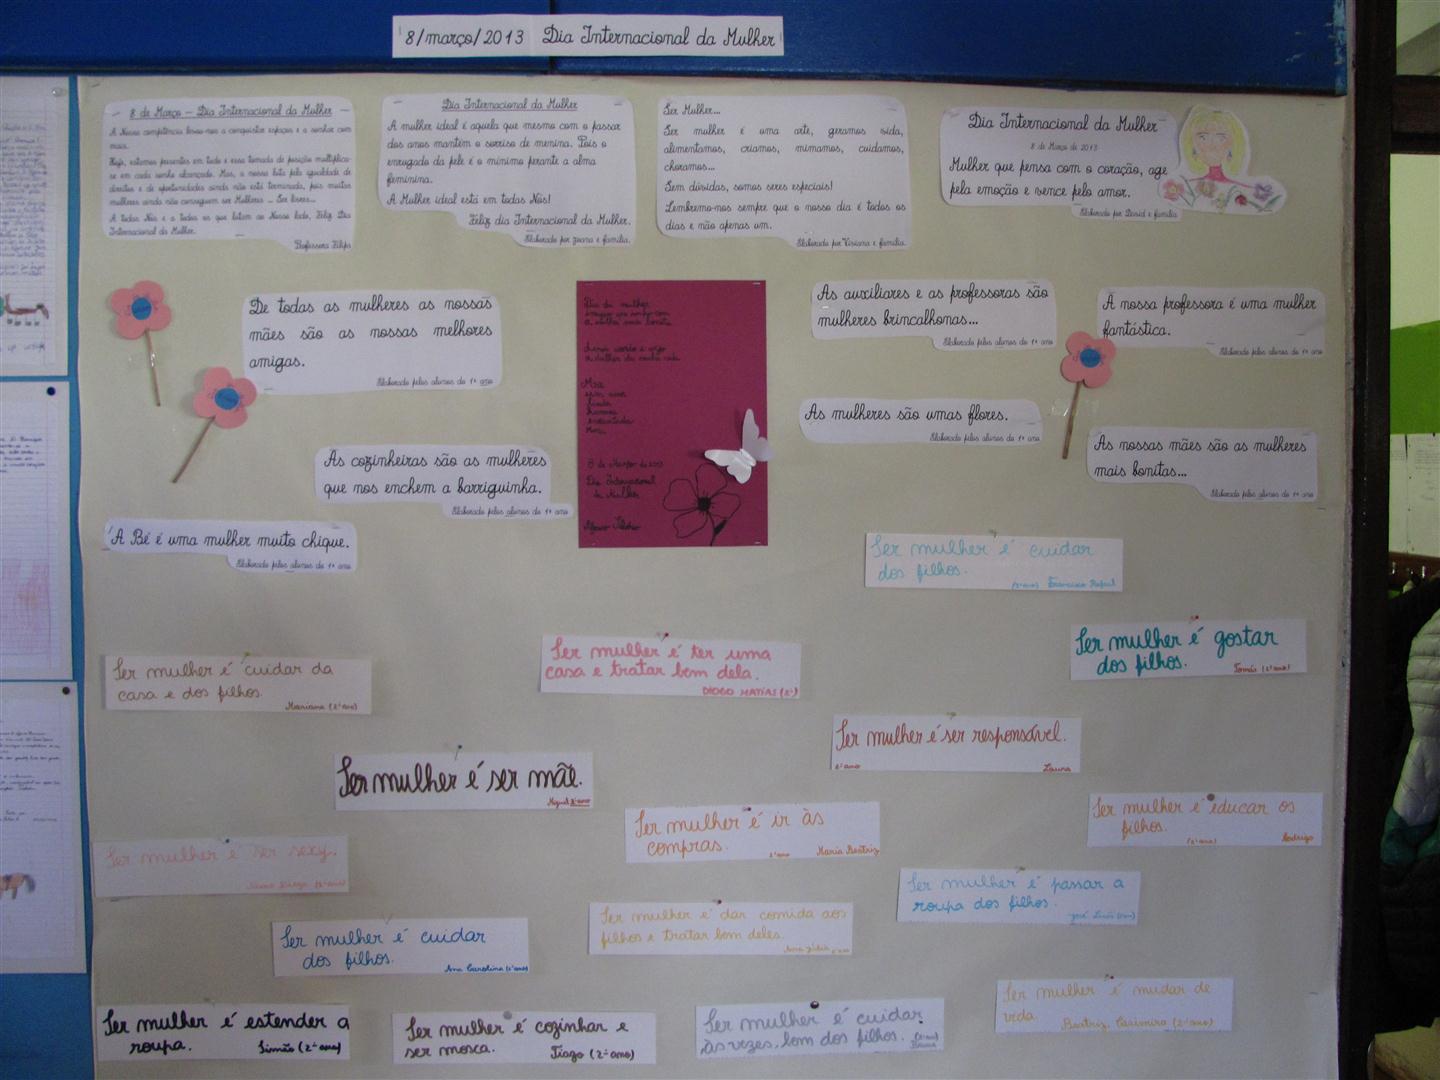 8/março/2013 Dia Internacional da Mulher
8 de Março - Dia Internacional da Mulher
A Nossa competência levou-nos a conquistar espaços e a sonhar com
mais.
Hoje, estamos presentes em tudo e essa tomada de posição multiplica-
se em cada sonho alcançado. Mas, a nossa luta pela igualdade de
direitos e de oportunidades ainda não está terminada, pois muitas
mulheres ainda não conseguem ser Mulheres - Ser livres...
A todas Nós e a todos os que lutam ao Nosso lado, Feliz Dia
Internacional da Mulher.
Professora Filipa
Dia Internacional da Mulher
A mulher ideal é aquela que mesmo com o passar
dos anos mantém o sorriso de menina. Pois o
enrugado da pele é o mínimo perante a alma
feminina.
A Mulher ideal está em todas Nós!
Feliz dia Internacional da Mulher.
Elaborado por Joana e família.
Ser Mulher...
Ser mulher é uma arte, geramos vida,
alimentamos, criamos, mimamos, cuidamos,
choramos...
Sem dúvidas, somos seres especiais!
Lembremo-nos sempre que o nosso dia é todos os
dias e não apenas um.
Elaborado por Viviana e família.
Dia Internacional da Mulher
8 de Março de 2013
Mulher que pensa com o coração, age
pela emoção e vence pelo amor.
Elaborado por David e família
De todas as mulheres as nossas
mães são as nossas melhores
amigas.
Elaborado pelos alunos do 1º ano
As cozinheiras são as mulheres
que nos enchem a barriguinha.
Elaborado pelos alunos do 1º ano
A Bé é uma mulher muito chique.
Elaborado pelos alunos do 1º ano
Dia da mulher
a mulher mais bonita
Mãe
linda
8 de Março de 2013
Dia Internacional
da Mulher
As auxiliares e as professoras são
mulheres brincalhonas...
Elaborado pelos alunos do 1º ano
A nossa professora é uma mulher
fantástica.
Elaborado pelos alunos do 1º ano
As mulheres são umas flores.
Elaborado pelos alunos do 1º ano
As nossas mães são as mulheres
mais bonitas...
Elaborado pelos alunos do 1º ano
Ser mulher é cuidar
dos filhos.
(2º ano) Francisco Rafael
Ser mulher é cuidar da
casa e dos filhos.
Mariana (2º ano)
Ser mulher é ter uma
casa e tratar bem dela.
DIOGO MATIAS (2º)
Ser mulher é gostar
dos filhos.
Tomás (2º ano)
Ser mulher é ser responsável.
2º ano Laura
Ser mulher é ser mãe.
Miguel 2º ano
Ser mulher é ir às
compras.
2º ano Maria Beatriz
Ser mulher é educar os
filhos.
(2º ano) Rodrigo
Ser mulher é ser sexy.
(2º ano)
Ser mulher é passar a
roupa dos filhos.
José Luís (2º ano)
Ser mulher é dar comida aos
filhos e tratar bem deles.
Ana 2º ano
Ser mulher é cuidar
dos filhos.
Ana Carolina (2º ano)
Ser mulher é mudar de
vida.
Beatriz Casimiro (2º ano)
Ser mulher é estender a
roupa.
Simão (2º ano)
Ser mulher é cozinhar e
ser mosca.
Tiago (2º ano)
Ser mulher é cuidar,
às vezes, bem dos filhos.
(2º ano)
Bruna